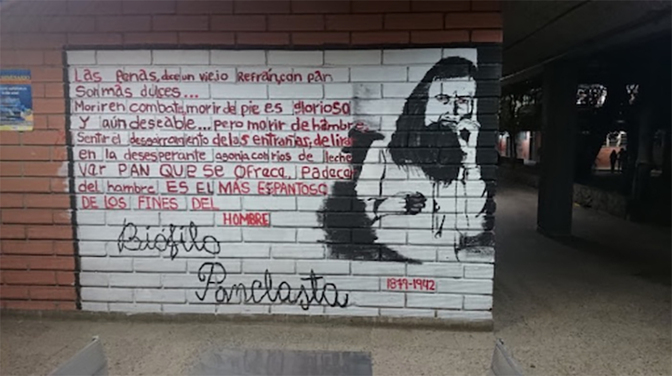 Las Penas, dice un viejo Refrán, con pan
Son más dulces...
Morir en combate, morir de pie es glorioso
Y aún deseable... pero morir de hambre
Sentir el desgarramiento de las entrañas, delirar
en la desesperante agonía con ríos de leche
Ver PAN QUE se OFRECE, Padecer
del hambre, ES EL MÁS ESPANTOSO
DE LOS FINES DEL
HOMBRE
Biófilo
Panclasta
1879-1942